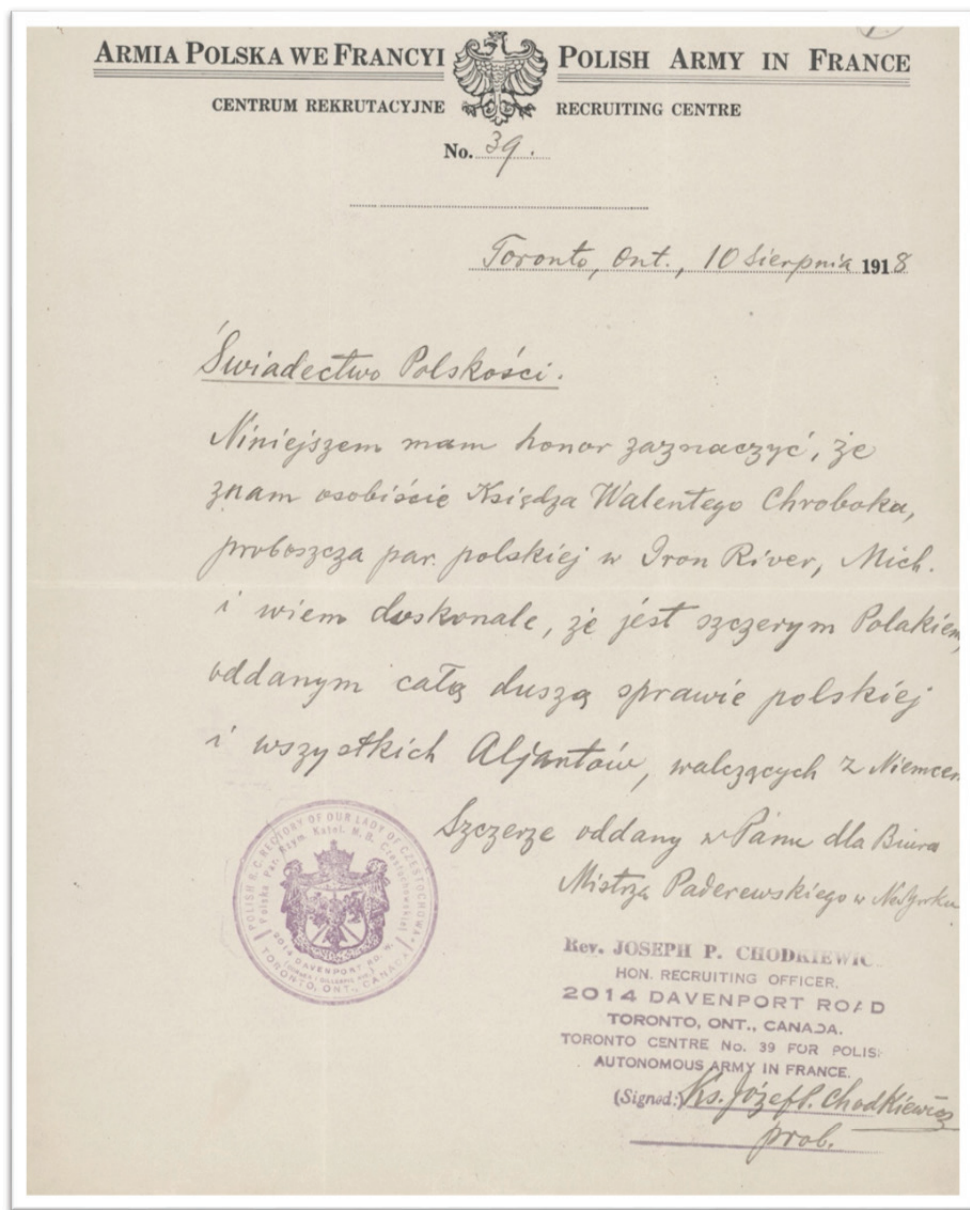 ARMIA POLSKA WE FRANCYI POLISH ARMY IN FRANCE
CENTRUM REKRUTACYJNE RECRUITING CENTRE
No. 39.
Toronto, Ont., 10 Sierpnia 1918
Świadectwo Polskości.
Niniejszem mam honor zaznaczyć, że
znam osobiście Księdza Walentego Chroboka,
proboszcza par. polskiej w Iron River, Mich.
i wiem doskonale, że jest szczerym Polakiem,
oddanym całą duszą sprawie polskiej
i wszystkich Aljantów, walczących z Niemcem
Szczerze oddany w Panu dla Biura
Mistrza Paderewskiego w
POLISH R.C. RECTORY OF OUR LADY OF CZESTOCHOWA
Polska Par. Rzym. Katol. M. B. Częstochowskiej
2014 DAVENPORT RD.
TORONTO, ONT., CANADA
Rev. JOSEPH P. CHODKIEWIC
HON. RECRUITING OFFICER.
2014 DAVENPORT ROAD
TORONTO, ONT., CANADA.
TORONTO CENTRE No. 39 FOR POLIS
AUTONOMOUS ARMY IN FRANCE.
(Signed:) Ks. Józef P. Chodkiewicz
prob.